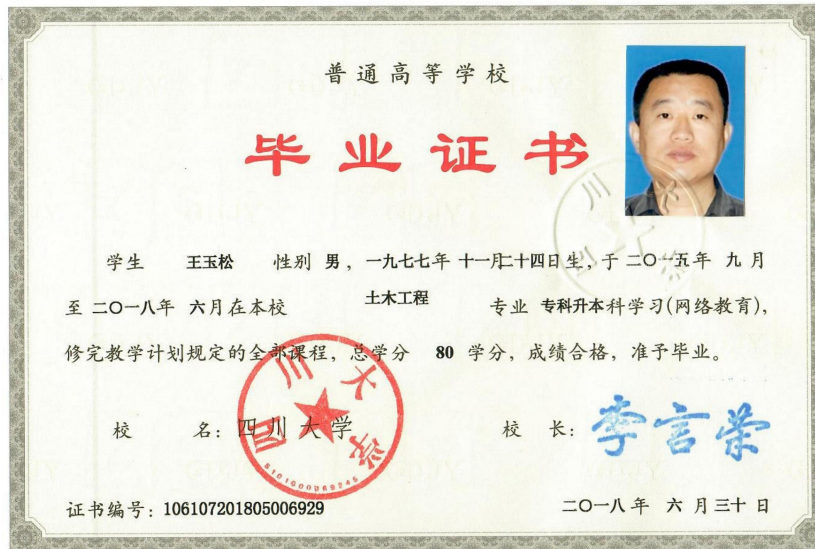 普通高等学校
毕业证书
学生 王玉松 性别 男，一九七七年 十一月二十四日生，于 二〇一五年 九月
至 二〇一八年 六月在本校 土木工程 专业 专科升本科学习(网络教育)，
修完教学计划规定的全部课程，总学分 80 学分，成绩合格，准予毕业。
校 名：四川大学 校 长：李言荣
四川大学
5101000069245
四川大学
证书编号：106107201805006929 二〇一八年 六月三十日